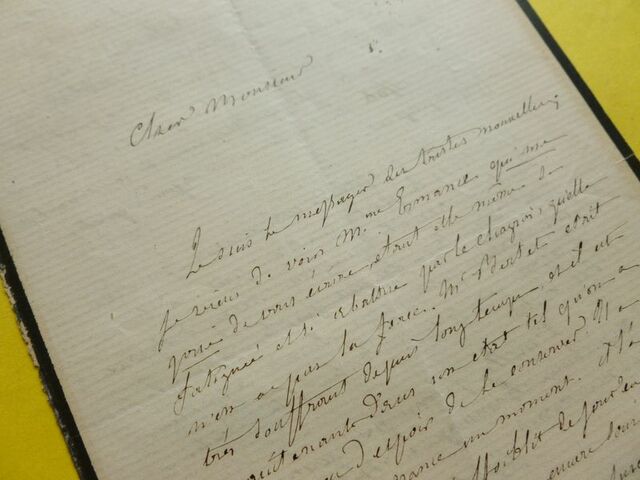 Cher Monsieur
Je suis le messager des tristes nouvelles;
je viens de voir Mme Ermance qui me
prie de vous écrire étant elle même si
fatiguée et si abattue par le chagrin, qu'elle
n'en a pas la force. Mr Bertet était
très souffrant depuis longtemps, et il est
maintenant dans un état tel qu'on a
d'espoir de le conserver. Il a
un moment. Il
de jour en
encore